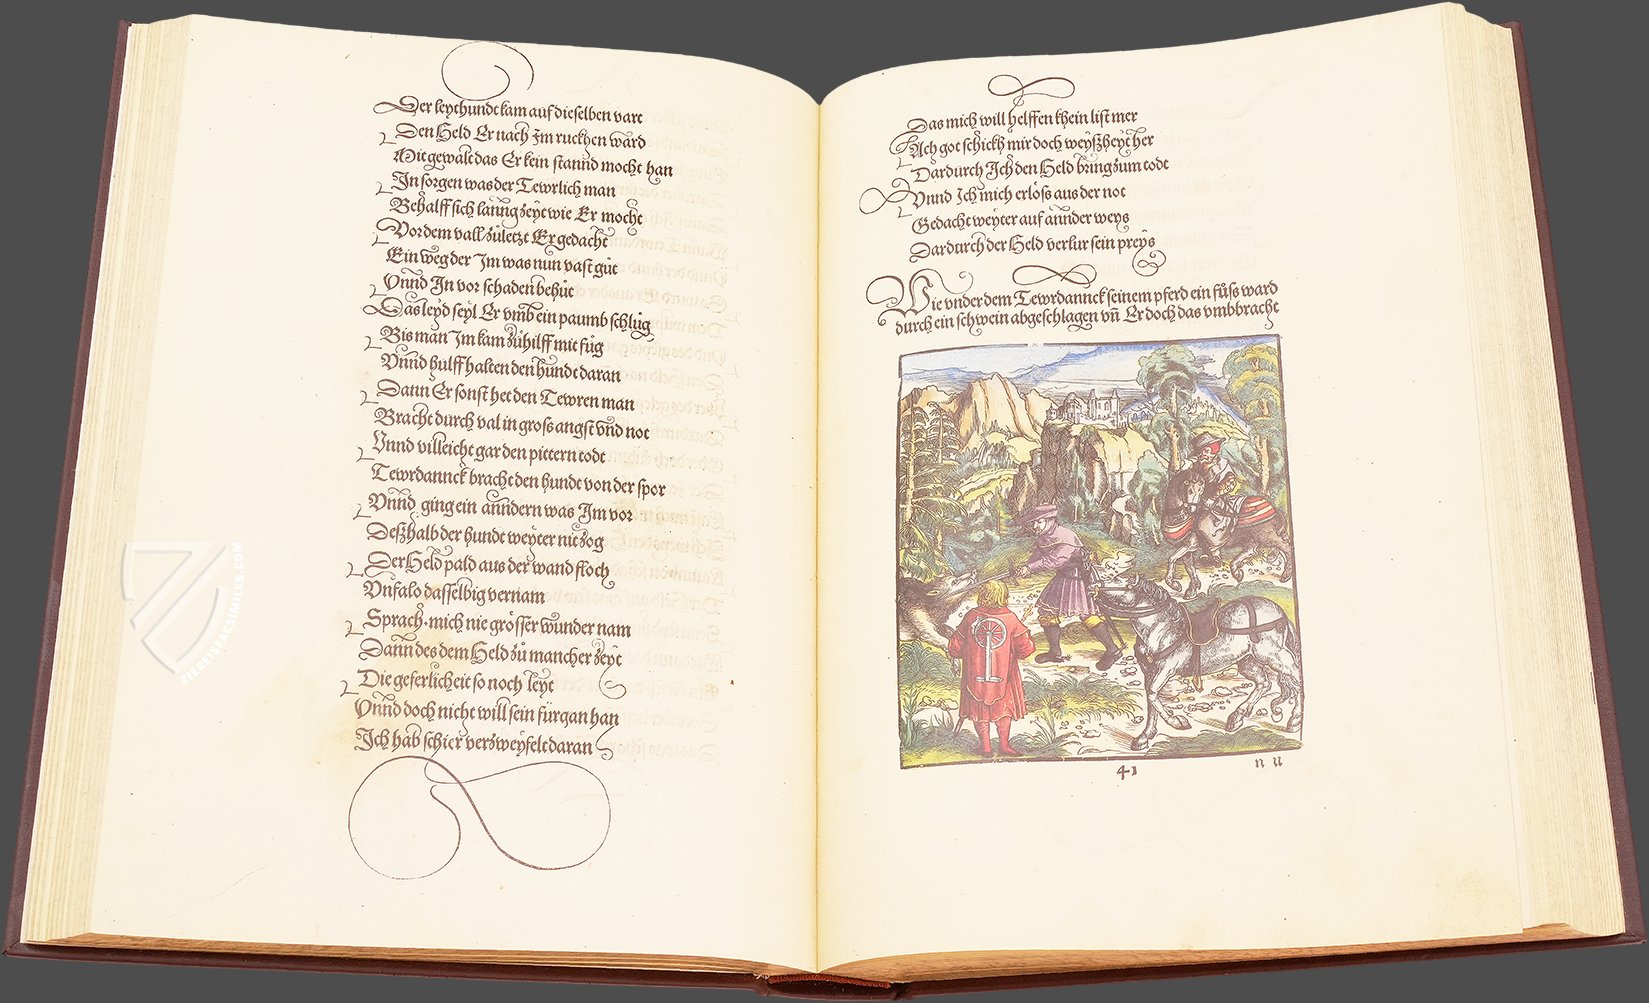 Der leythundt kam auf dieselben vart
Den Held Er nach Im ruckhen ward
Mit gewalt das Er kein stannd mocht han
In sorgen was der Tewrlich man
Behalff sich lanng zeyt wie Er mocht
Vor dem vall zůletzt Er gedacht
Ein weg der Im was nun vast gůt
Vnnd In vor schaden behůt
Das leyd seyl Er vmb ein paumb schlůg
Bis man Im kam zůhilff mit fůg
Vnnd hulff halten den hundt daran
Dann Er sonst het den Tewren man
Bracht durch val in gross angst vnd not
Vnnd villeicht gar den pittern todt
Tewrdannck bracht den hundt von der spor
Vnnd ging ein anndern was Im vor
Deßhalb der hundt weyter nit zog
Der Held pald aus der wand floch
Vnfalo dasselbig vernam
Sprach mich nie grösser wunder nam
Dann des dem Held zů mancher zeyt
Die geferlicheit so noch leyt
Vnnd doch nicht will sein fürgan han
Ich hab schier verzweyfelt daran
Das mich will helffen khein list mer
Ach got schickh mir doch weyßheyt her
Dardurch Ich den Held bring zum todt
Vnnd Ich mich erlöss aus der not
Gedacht weyter auf annder weys
Dardurch der Held verlur sein preys
Wie vnder dem Tewrdannck seinem pferd ein fůss ward
durch ein schwein abgeschlagen vn̄ Er doch das vmbbracht
41
n ii
ZIEREIS FACSIMILES.COM